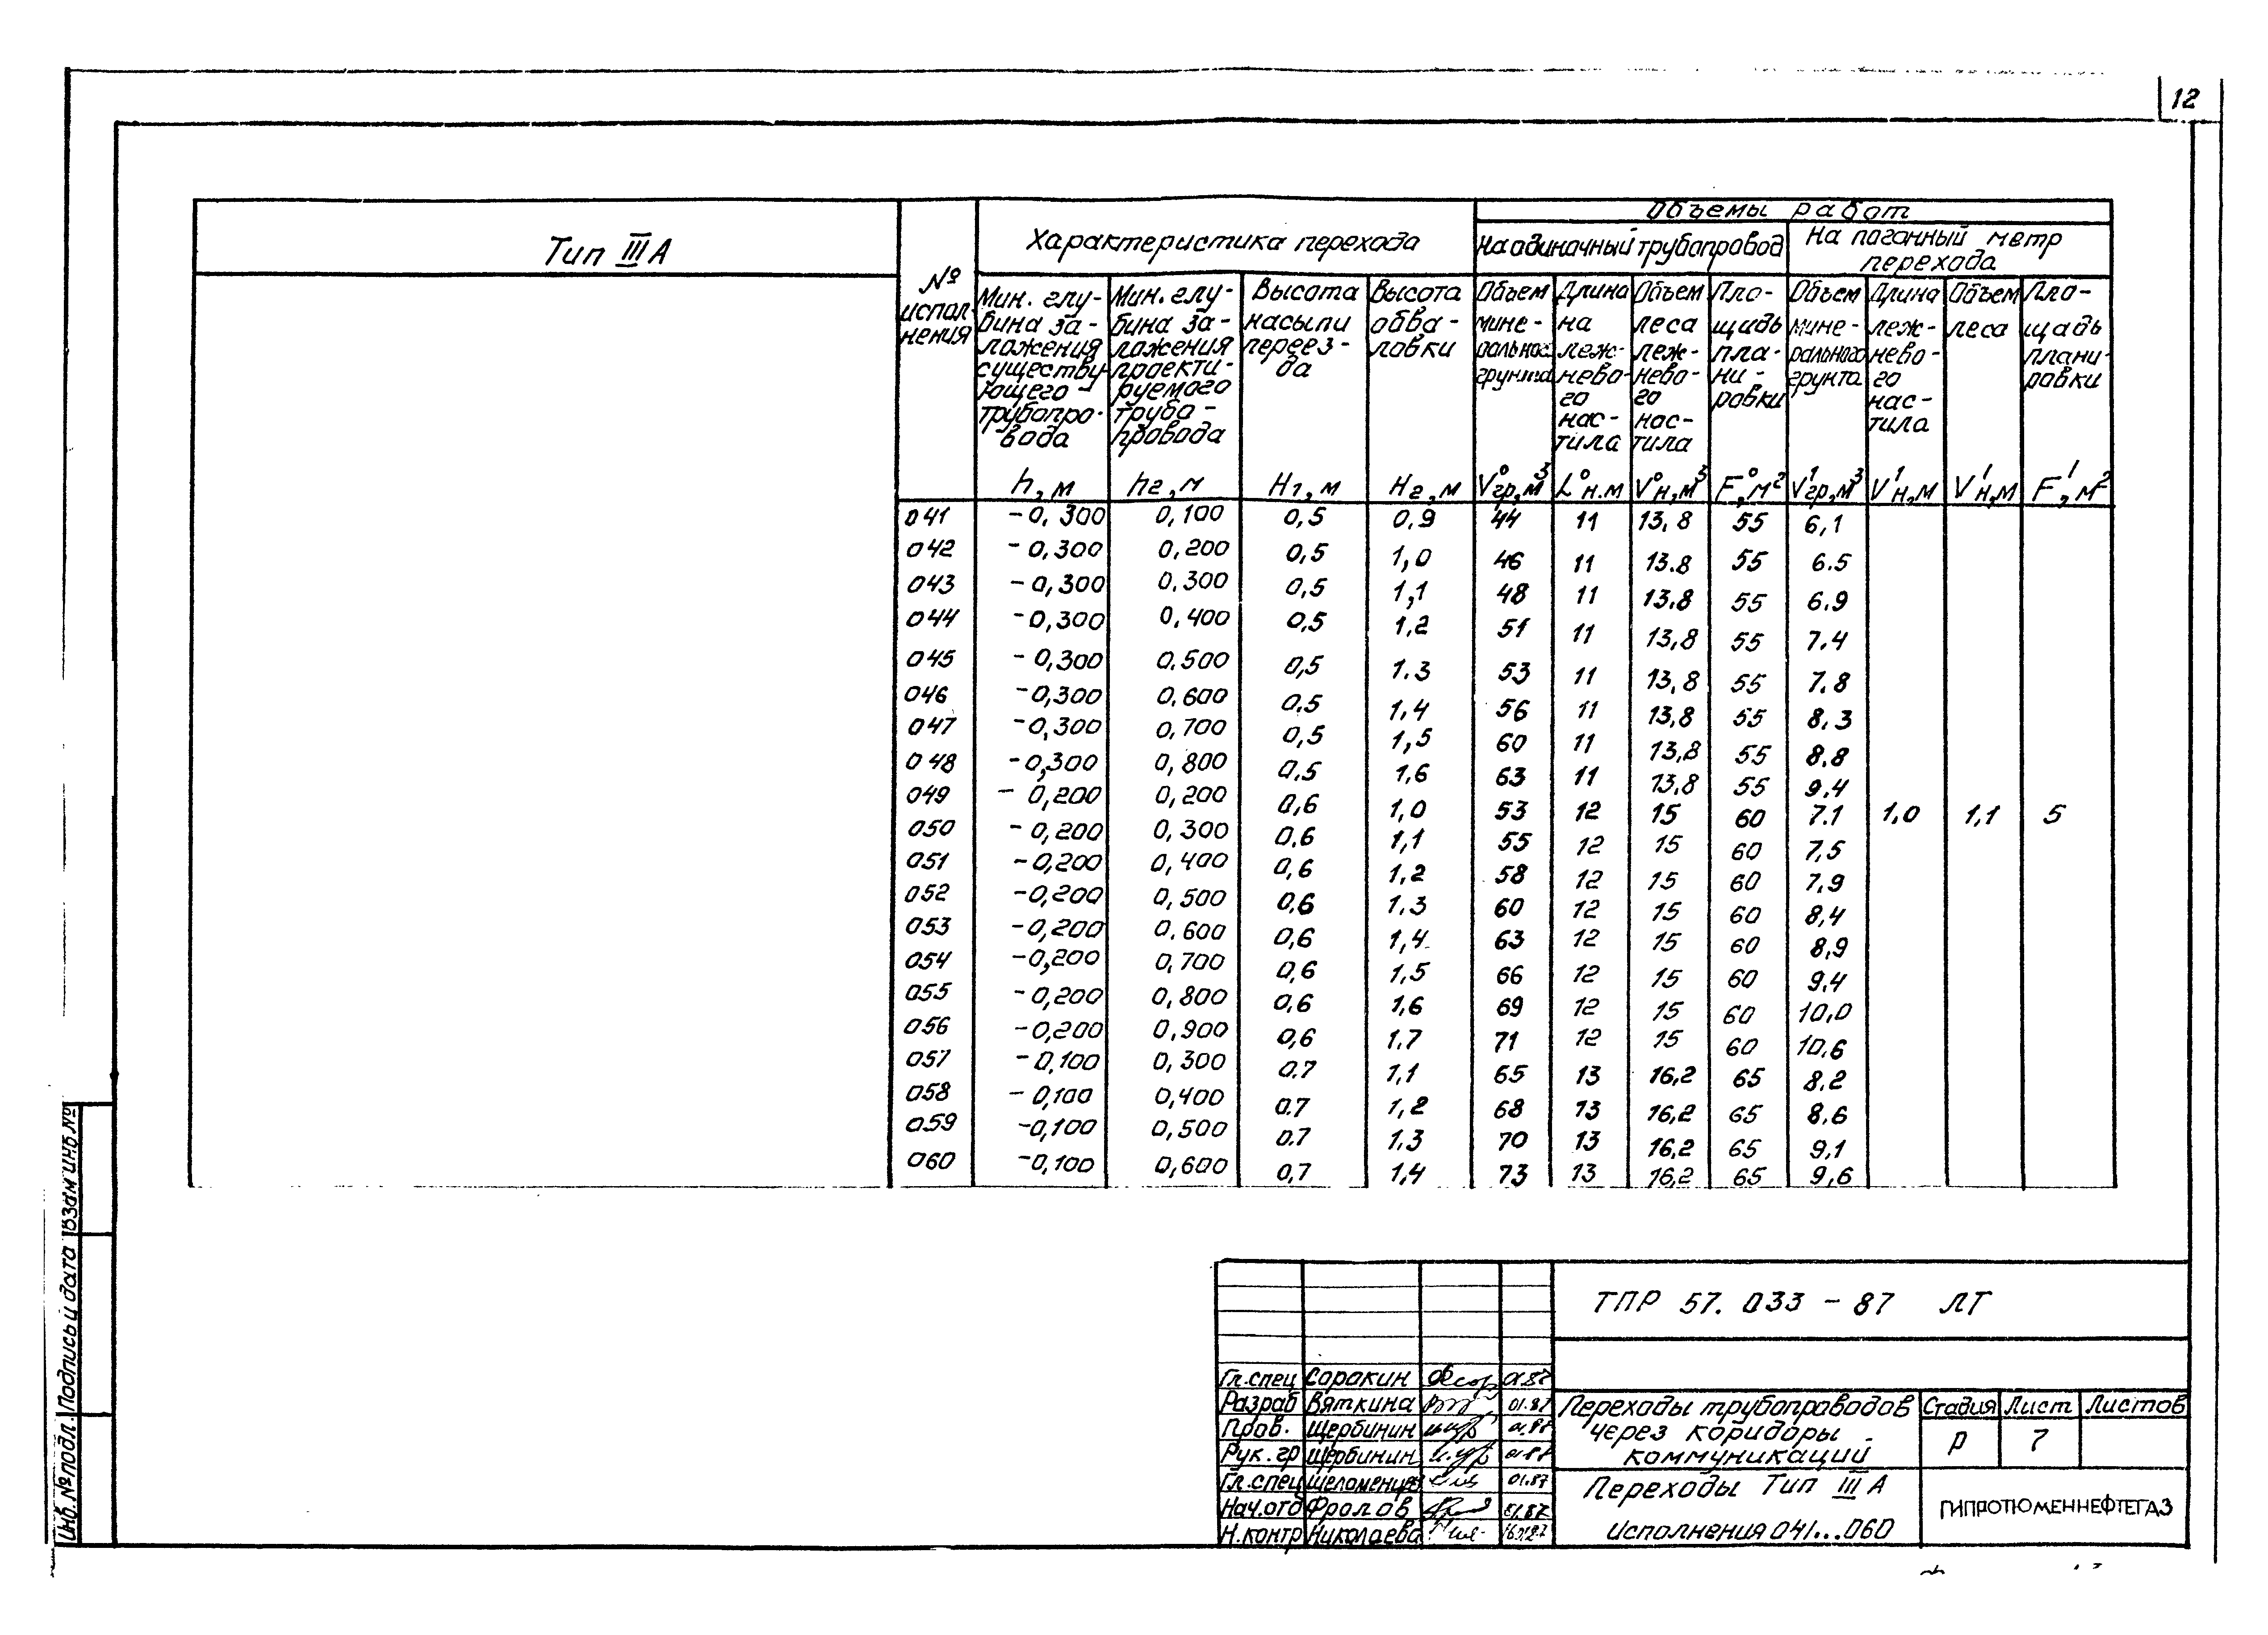 12
Тип III А
№ исполнения
Характеристика перехода
Объемы работ
На одиночный трубопровод
На погонный метр перехода
Мин. глубина заложения существующего трубопровода
Мин. глубина заложения проектируемого трубопровода
Высота насыпи переезда
Высота обваловки
Объем минерального грунта
Длина на лежневого настила
Объем леса лежневого настила
Площадь планировки
Объем минерального грунта
Длина лежневого настила
Объем леса
Площадь планировки
h, м	h2, м	H1, м	H2, м	V°гр, м³	L°н.м	V°н, м³	F°, м²	V¹гр, м³	V¹н, м	V¹н, м	F¹, м²
041	-0,300	0,100	0,5	0,9	44	11	13,8	55	6,1
042	-0,300	0,200	0,5	1,0	46	11	13.8	55	6.5
043	-0,300	0.300	0,5	1,1	48	11	13.8	55	6.9
044	-0,300	0,400	0,5	1,2	51	11	13,8	55	7.4
045	-0,300	0.500	0,5	1.3	53	11	13,8	55	7.8
046	-0,300	0,600	0,5	1,4	56	11	13,8	55	8,3
047	-0,300	0,700	0,5	1,5	60	11	13,8	55	8.8
048	-0,300	0,800	0,5	1,6	63	11	13,8	55	9,4
049	-0,200	0,200	0,6	1,0	53	12	15	60	7.1	1,0	1,1	5
050	-0,200	0,300	0,6	1,1	55	12	15	60	7,5
051	-0,200	0,400	0,6	1,2	58	12	15	60	7,9
052	-0,200	0,500	0,6	1,3	60	12	15	60	8,4
053	-0,200	0.600	0,6	1,4	63	12	15	60	8,9
054	-0,200	0,700	0,6	1,5	66	12	15	60	9,4
055	-0,200	0,800	0,6	1,6	69	12	15	60	10,0
056	-0,200	0,900	0,6	1.7	71	12	15	60	10,6
057	-0,100	0,300	0.7	1,1	65	13	16,2	65	8,2
058	-0,100	0,400	0.7	1,2	68	13	16,2	65	8,6
059	-0,100	0,500	0.7	1.3	70	13	16,2	65	9,1
060	-0,100	0,600	0,7	1,4	73	13	16,2	65	9,6
Взам инв №
Подпись и дата
Инв. № подл.
ТПР 57.033-87 ЛТ
Гл. спец Сорокин 01.87
Разраб Вяткина 01.87
Пров. Щербинин 01.87
Рук. гр Щербинин 01.87
Гл. спец 01.87
Нач. отд Фролов 01.87
Н. контр Николаева
Переходы трубопроводов
через коридоры
коммуникаций
Стадия Лист Листов
Р 7
Переходы Тип III А
Исполнения 041...060
ГИПРОТЮМЕННЕФТЕГАЗ